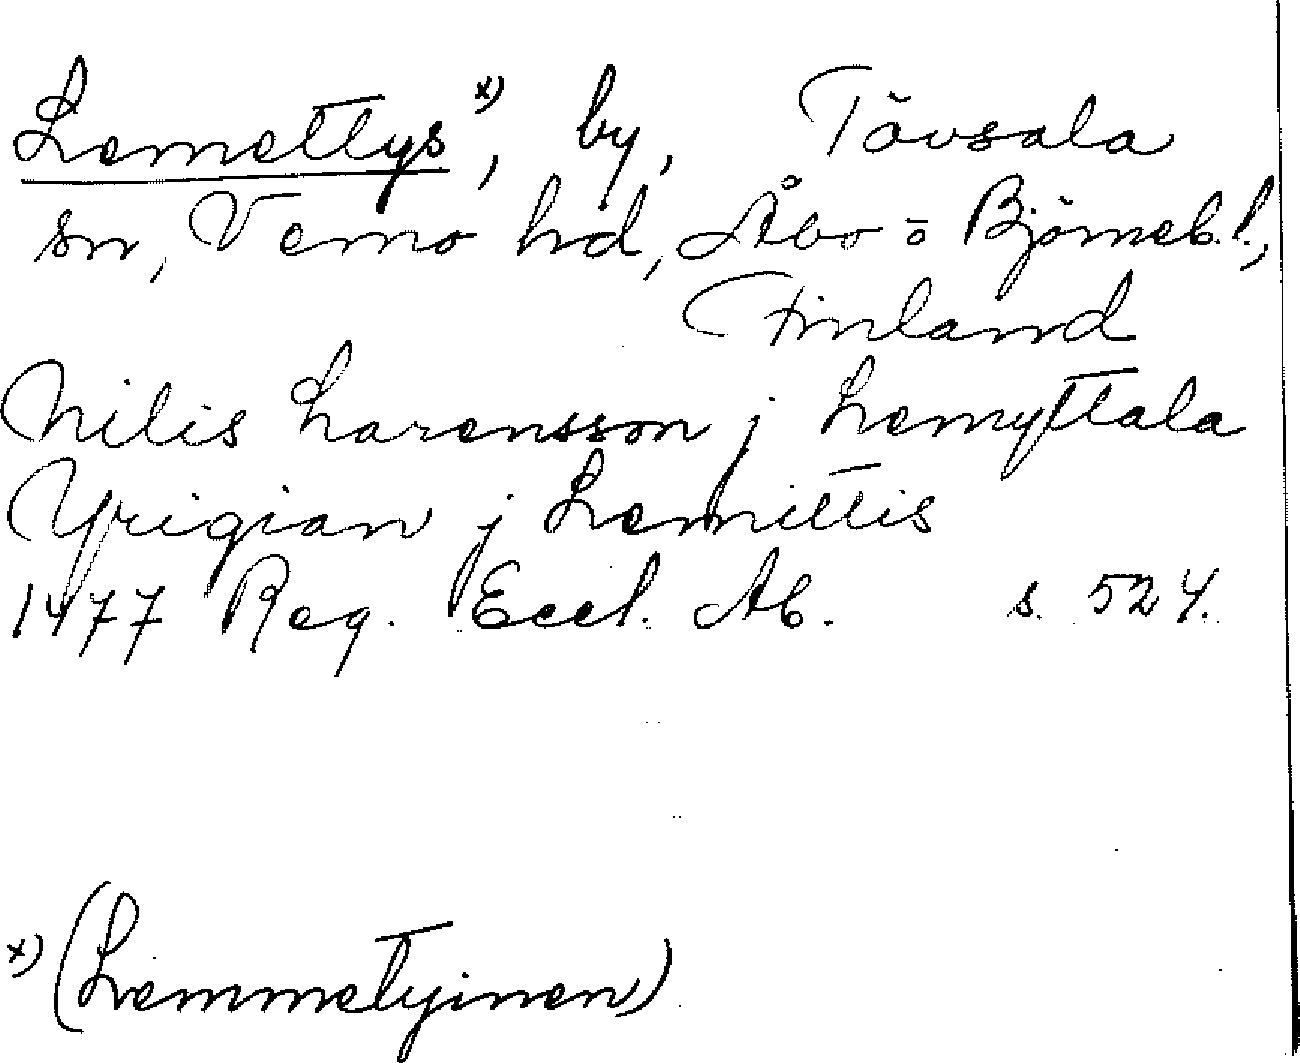 Lemettys x), by, Tövsala
sn, Vemo hd, Åbo o Björneb. l.,
Finland
Nilis Larensson j Lemyttala
Yrigian j Lemittis
1477 Reg. Eccl. Ab. s. 524.
x) (Lemmetyinen)